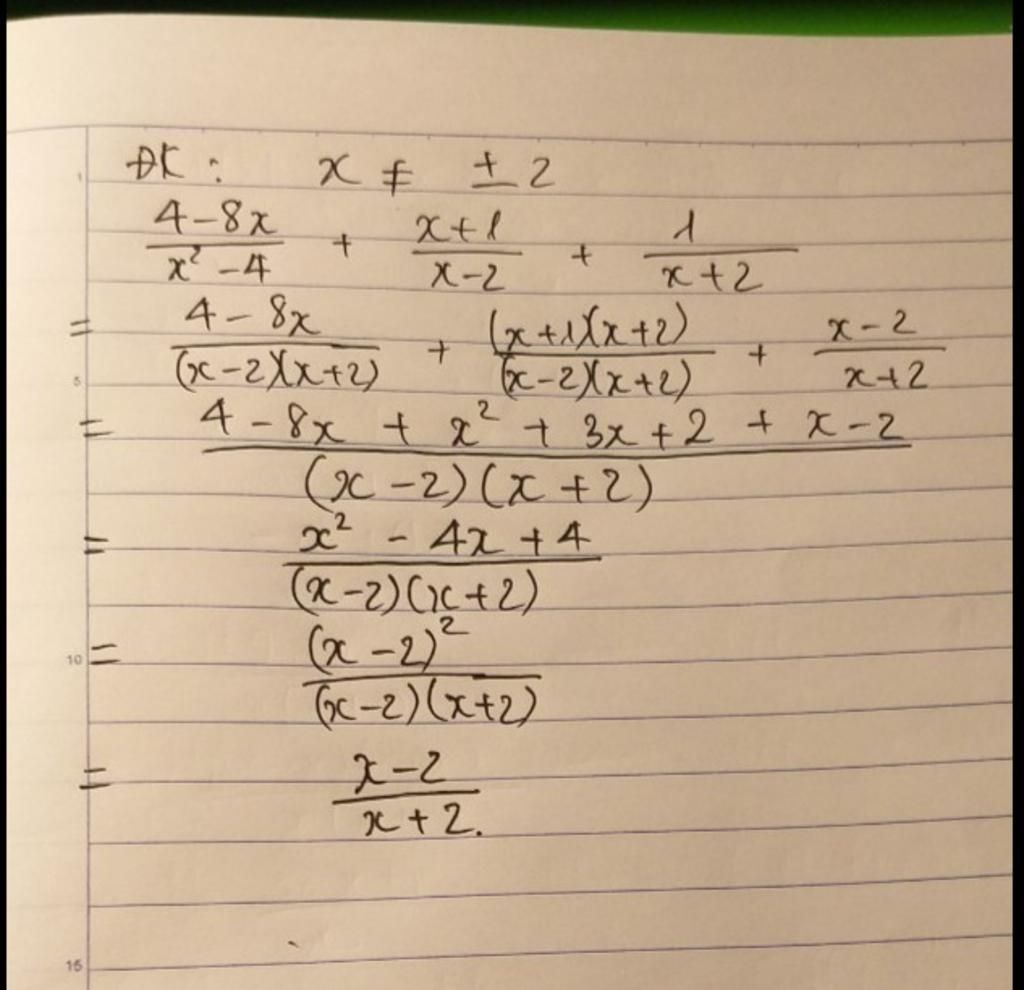 ĐK : x ≠ ± 2
(4-8x)/(x² -4) + (x+1)/(x-2) + 1/(x+2)
= (4-8x)/((x-2)(x+2)) + ((x+1)(x+2))/((x-2)(x+2)) + (x-2)/(x+2)
= (4-8x + x² + 3x+2 + x-2)/((x-2)(x+2))
= (x² - 4x+4)/((x-2)(x+2))
= (x-2)²/((x-2)(x+2))
= (x-2)/(x+2).
1
5
10
15